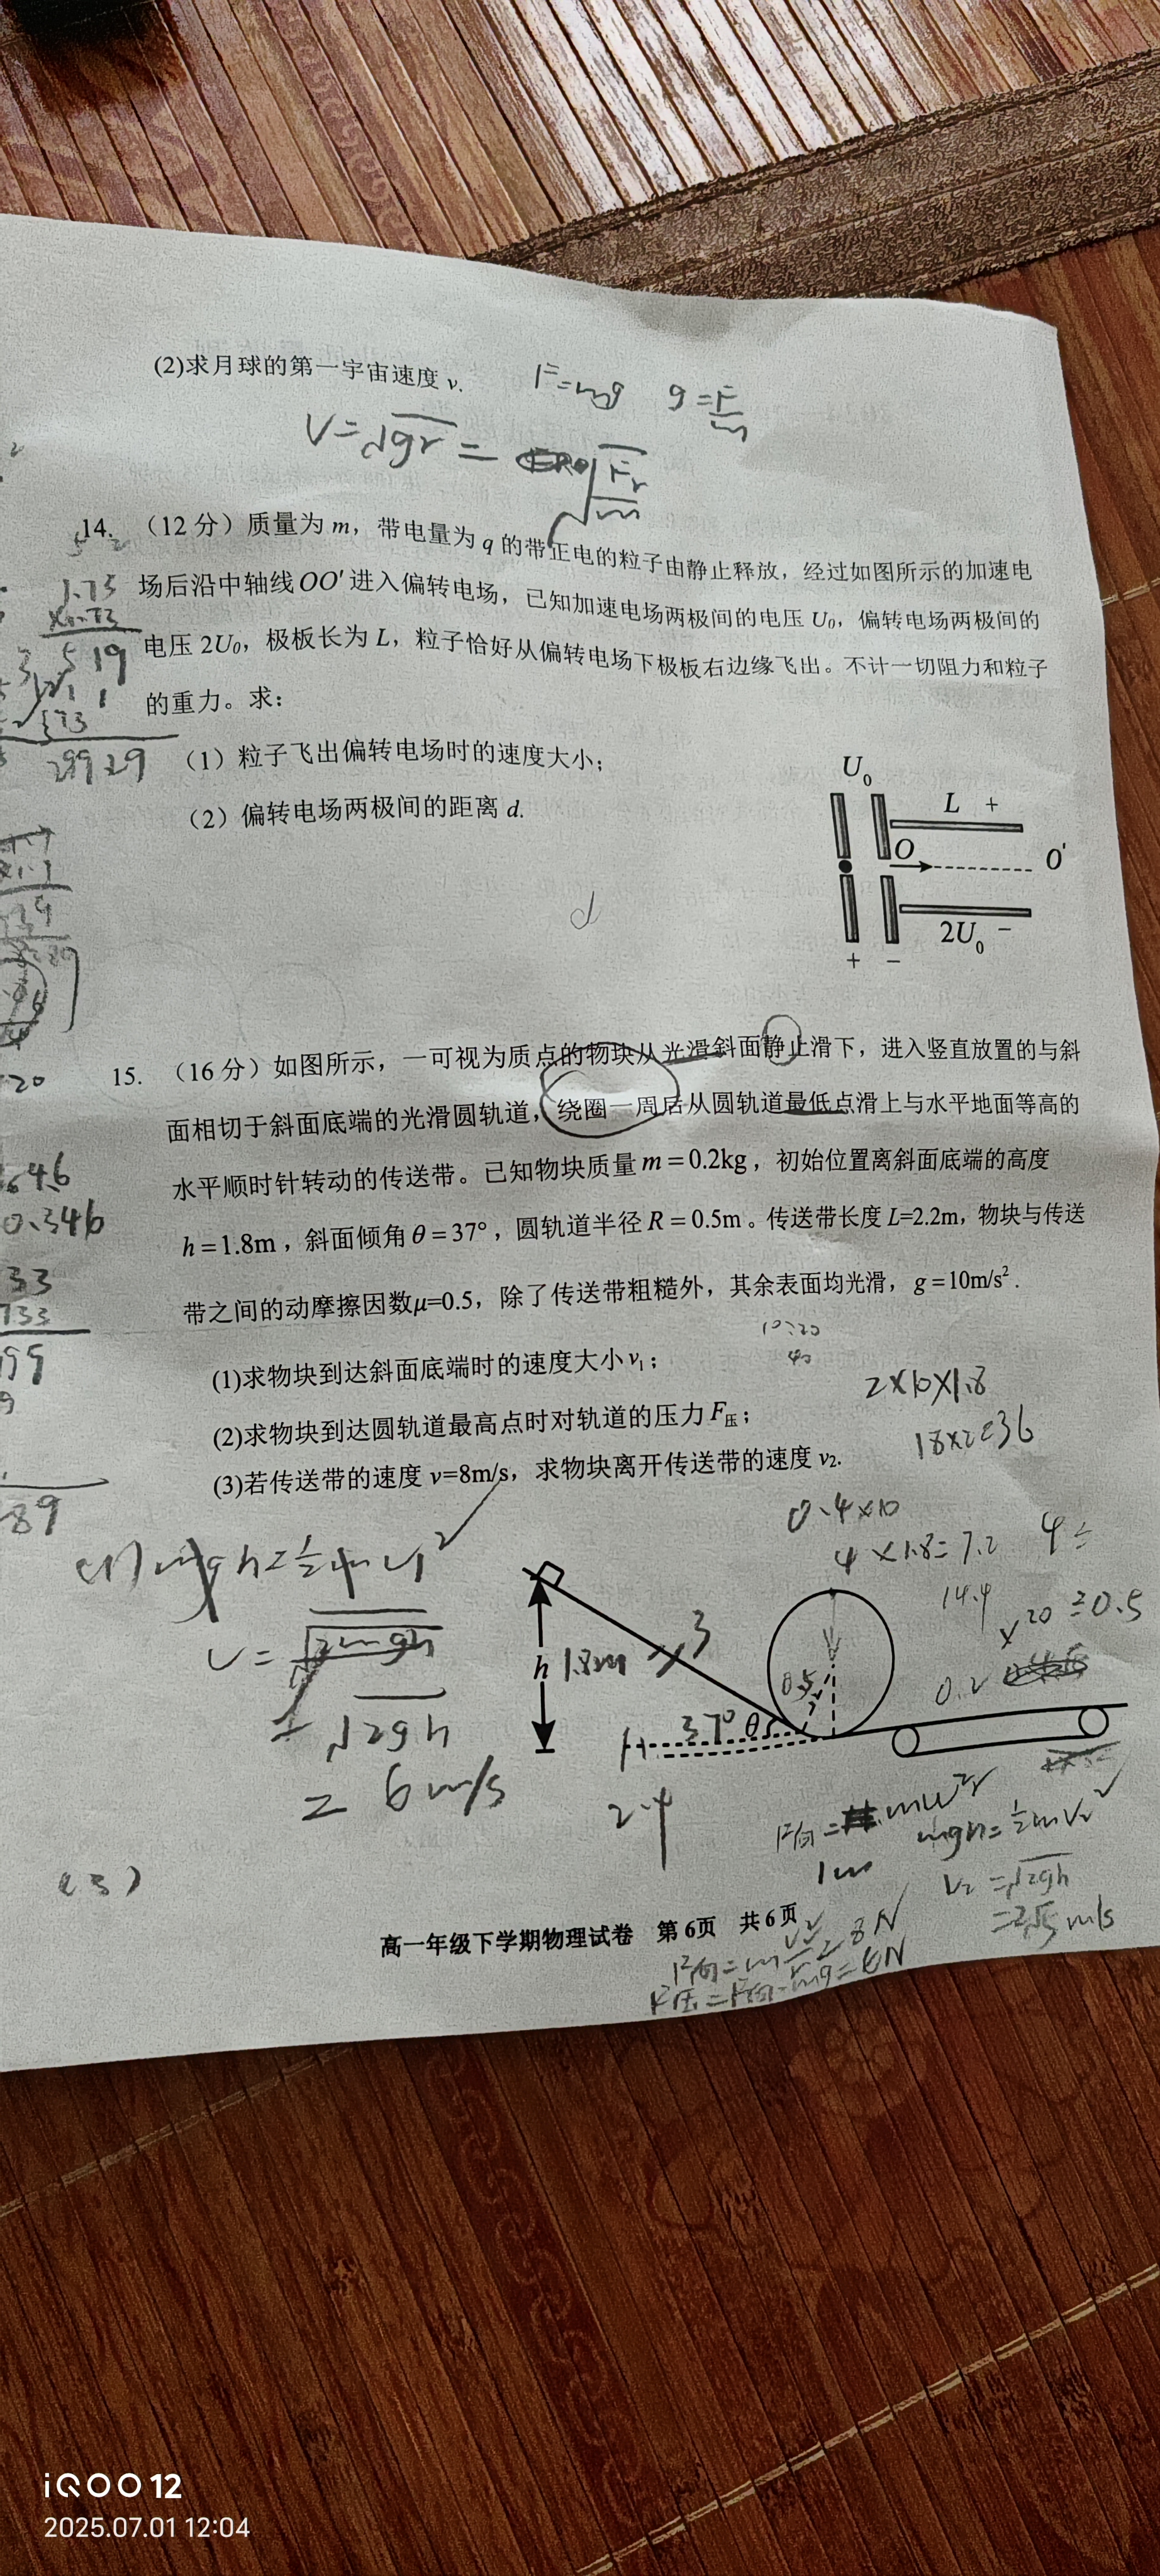 (2)求月球的第一宇宙速度 v.
F=mg g=F/m
V=√gr = √Fr/m
14. （12分）质量为 m，带电量为 q 的带正电的粒子由静止释放，经过如图所示的加速电
场后沿中轴线 OO′ 进入偏转电场，已知加速电场两极间的电压 U₀，偏转电场两极间的
电压 2U₀，极板长为 L，粒子恰好从偏转电场下极板右边缘飞出。不计一切阻力和粒子
的重力。求：
（1）粒子飞出偏转电场时的速度大小；
（2）偏转电场两极间的距离 d.
1.73
519
29929
U₀
L +
O
O′
2U₀ −
+ −
d
15. （16分）如图所示，一可视为质点的物块从光滑斜面静止滑下，进入竖直放置的与斜
面相切于斜面底端的光滑圆轨道，绕圈一周后从圆轨道最低点滑上与水平地面等高的
水平顺时针转动的传送带。已知物块质量 m＝0.2kg，初始位置离斜面底端的高度
h＝1.8m，斜面倾角 θ＝37°，圆轨道半径 R＝0.5m。传送带长度 L=2.2m，物块与传送
带之间的动摩擦因数μ=0.5，除了传送带粗糙外，其余表面均光滑，g＝10m/s².
(1)求物块到达斜面底端时的速度大小 v₁；
(2)求物块到达圆轨道最高点时对轨道的压力 F压；
(3)若传送带的速度 v=8m/s，求物块离开传送带的速度 v₂.
0.346
733
199
89
2×10×1.8
18×2=36
0.4×10
4×1.8=7.2
14.4
(1) mgh=½mv₁²
V=√2mgh
=√2gh
= 6m/s
h 1.8m
3
0.5
37° θ
2.4
0.2
F向=mω²r
mgh=½mv₂²
V₂=√2gh
=2√5 m/s
(3)
高一年级下学期物理试卷 第6页 共6页
F向=m v²/r=8N
F压=F向-mg=6N
iQOO 12
2025.07.01 12:04